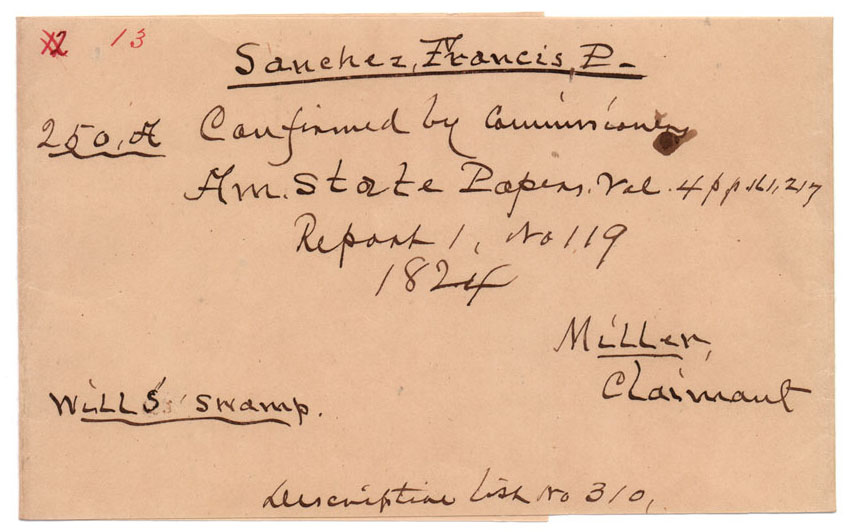 13
Sanchez, Francis, P-
250, A Confirmed by Commissioners
Am. State Papers. Vol. 4 pp 161, 217
Report 1, No 119
1824
Miller,
Claimant
Wills' Swamp.
Descriptive List No 310,